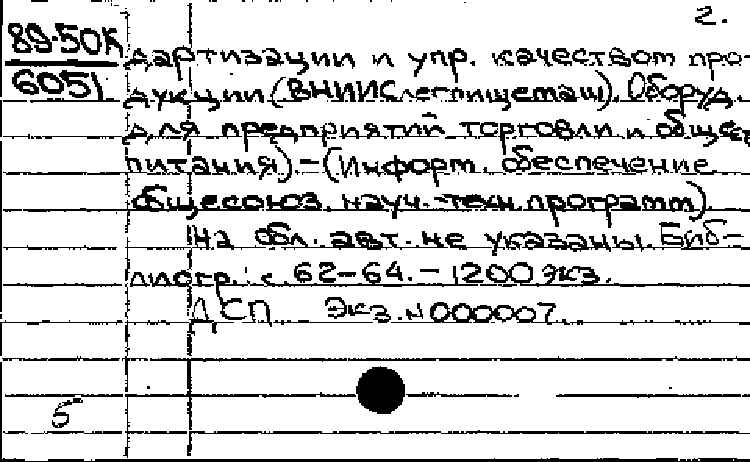 2.
89-50К
6051
дартизации и упр. качеством про-
дукции (ВНИИСлегпищемаш). Оборуд.
для предприятий торговли и обществ.
питания). - (Информ. обеспечение
общесоюз. науч.-техн. программ).
На обл. авт. не указаны. Биб-
лиогр.: с. 62-64. - 1200 экз.
ДСП Экз. N 000007.
б